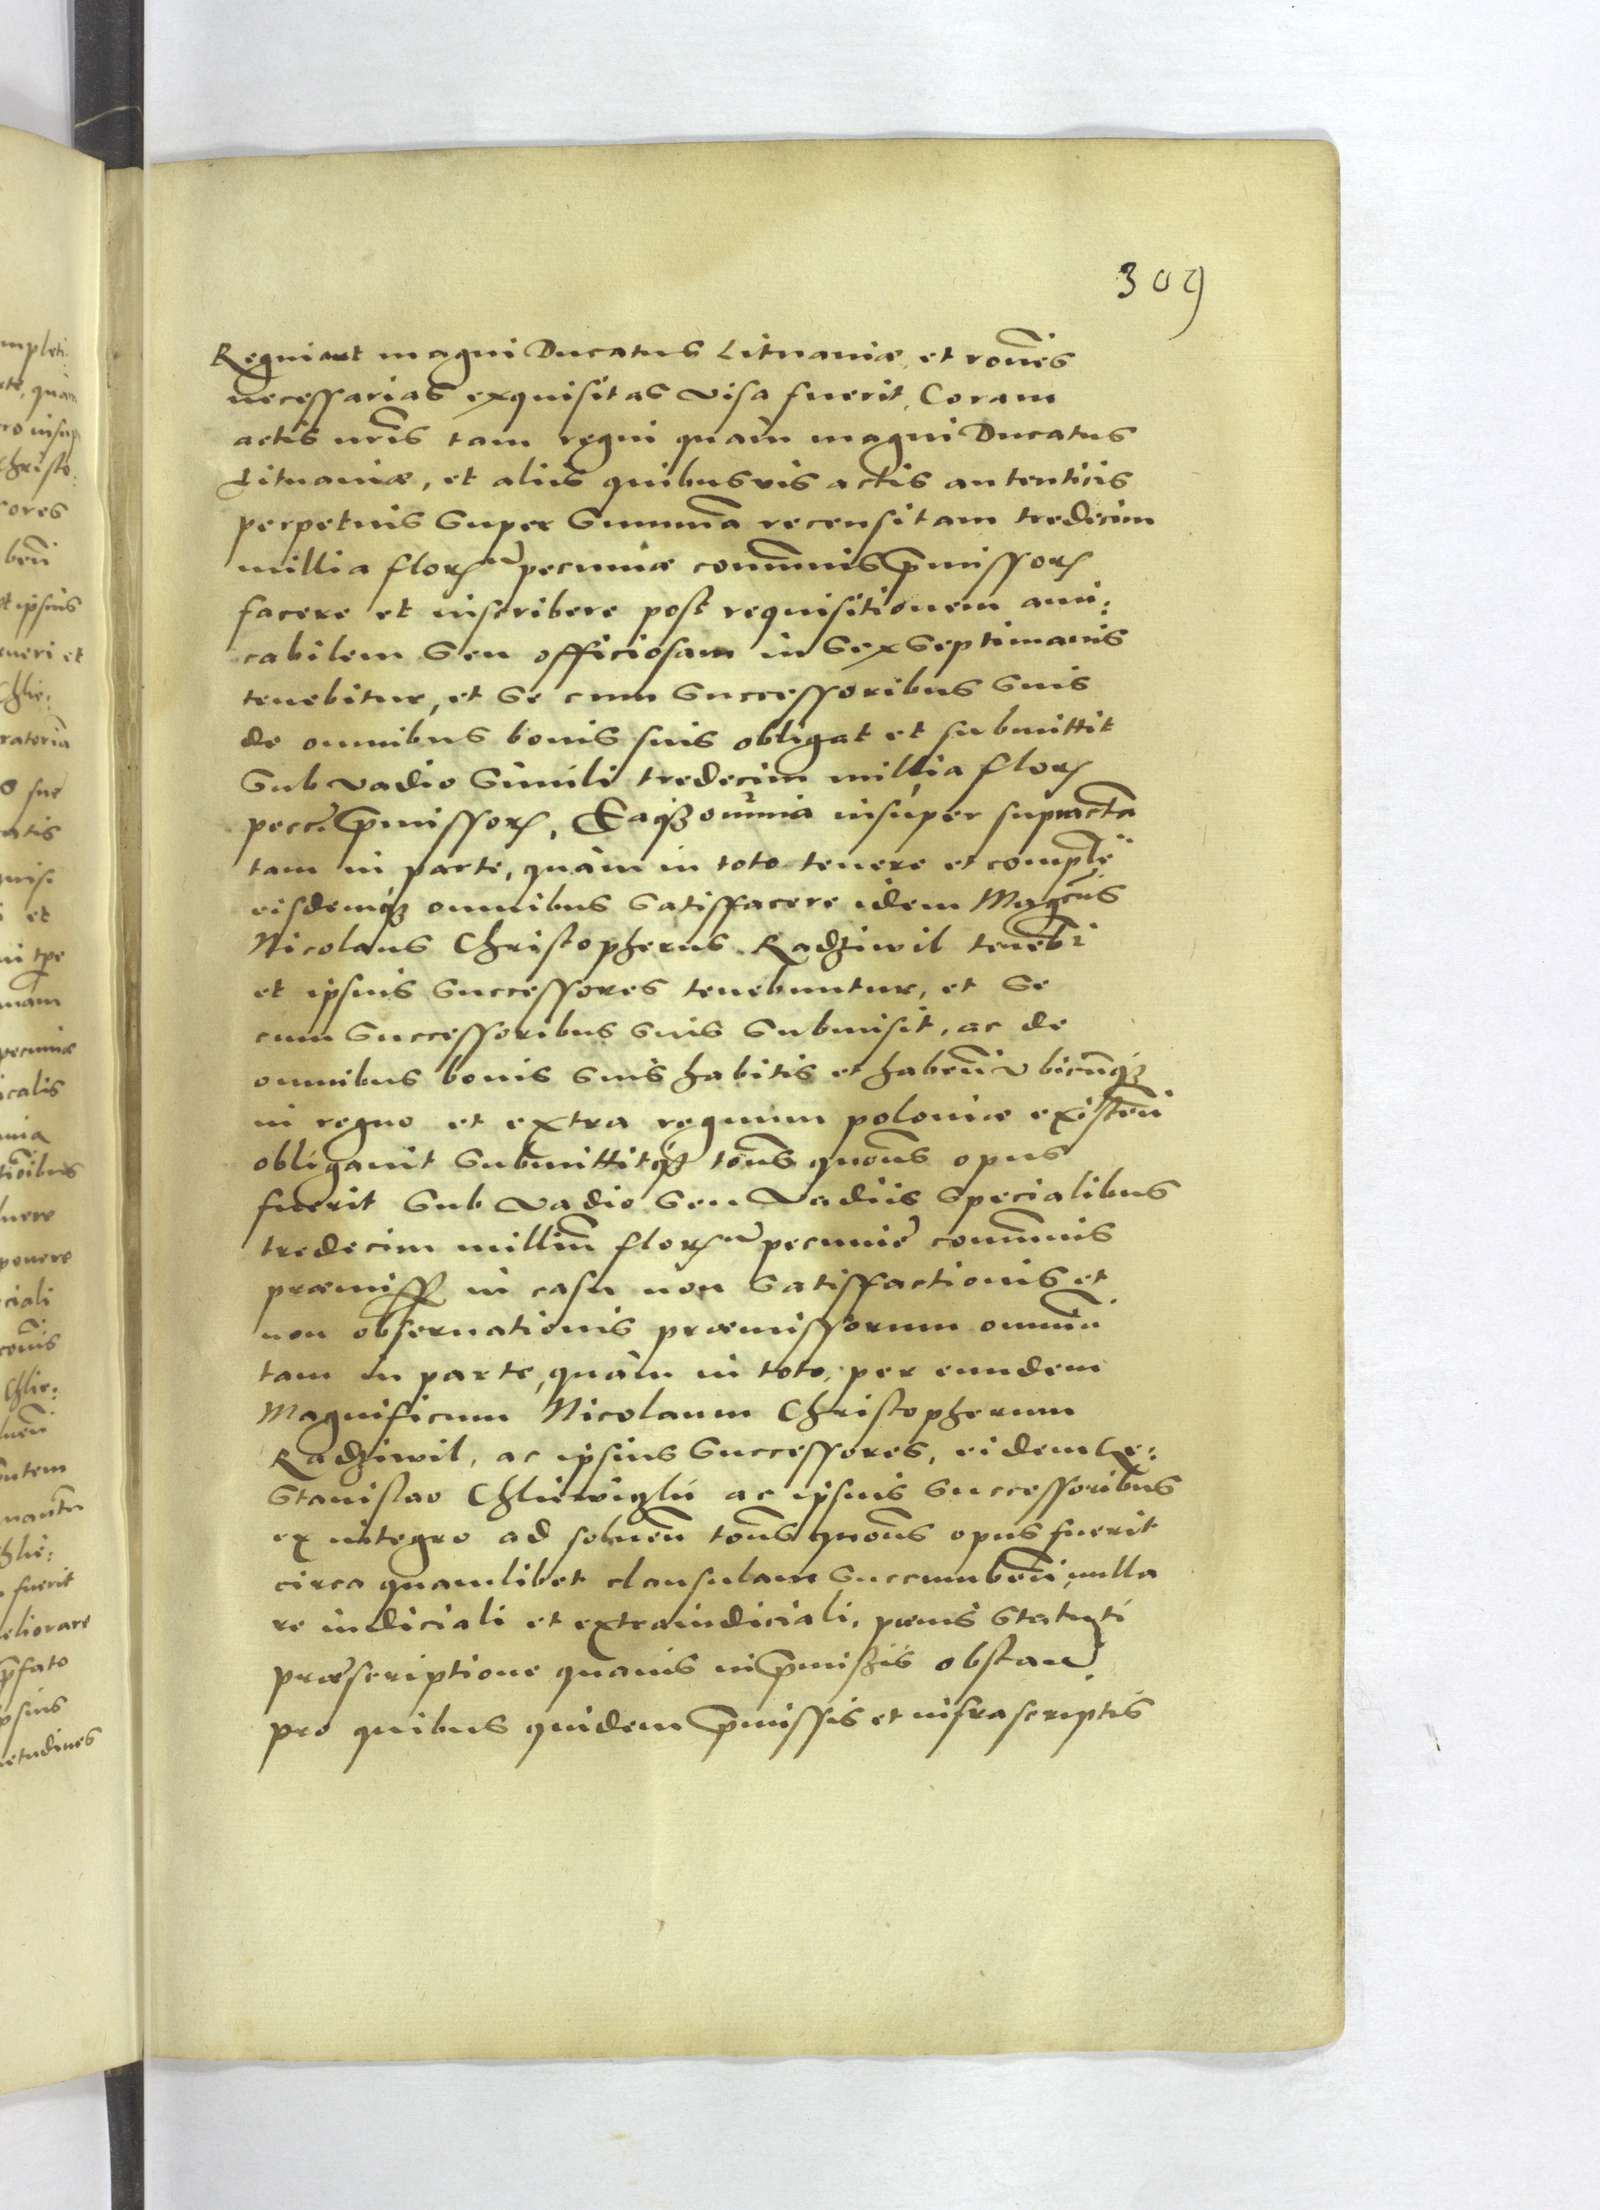 309
Regni aut magni Ducatus Lituaniæ, et rōnes
necessarias exquisitas visa fuerit, Coram
actis nrīs tam regni quàm magni Ducatus
Lituaniæ, et aliis quibusvis actis autenticis
perpetuis super summa recensitam tredecim
millia floru pecuniæ communis pmissor
facere et inscribere post requisitionem ami:
cabilem seu officiosam in sex septimanis
tenebitur, et se cum successoribus suis
de omnibus bonis suis obligat et submittit
sub vadio simili tredecim millia flor
pecc: pmissor, Eaqz omnia insuper supracta
tam in parte, quàm in toto tenere et comple
eisdemqz omnibus satisfacere idem Magcus
Nicolaus Christopherus Radziwil teneb
et ipsius successores tenebuntur, et se
cum successoribus suis submisit, ac de
omnibus bonis suis habitis et haben ubicunqz
in regno et extra regnum poloniæ existen
obligauit submittitqz tons quons opus
fuerit sub vadio seu vadiis specialibus
tredecim milliu floru pecuniæ communis
præmiss in casu non satisfactionis et
non obseruationis præmissorum omniu
tam in parte, quàm in toto, per eundem
Magnificum Nicolaum Christopherum
Radziwil, ac ipsius successores, eidem
Stanislao Chliewiczkii ac ipsius successoribus
ex integro ad soluen tons quons opus fuerit
circa quamlibet clausulam succumben, nulla
re iudiciali et extraiudiciali, pœnis statuti
præscriptione quauis in pmissis obstan
pro quibus quidem pmissis et infrascriptis